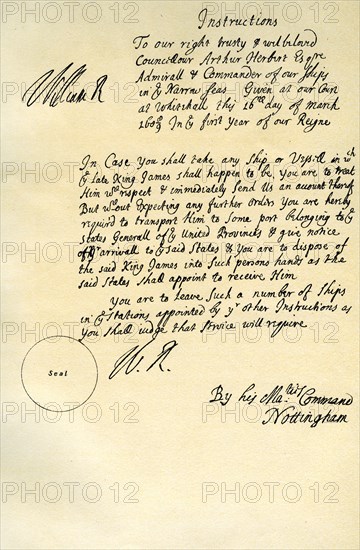 Instructions
To our right trusty & welbelovd
Councellour Arthur Herbert Esqre
Admirall & Commander of our Ships
in ye Narrow Seas Given at our Court
at Whitehall this 16th day of March
1688/9 In ye first year of our Reigne
William R
In Case you shall take any Ship or Vessell in wch
ye late King James shall happen to be, you are to treat
Him wth respect & immediately Send Us an account thereof
But wthout Expecting any further orders you are hereby
requir'd to transport Him to Some port belonging to ye
States Generall of ye United Provinces & give notice
of his arrivall to ye said States & you are to dispose of
the said King James into Such persons hands as the
said States shall appoint to receive Him
you are to leave Such a number of Ships
in ye Stations appointed by yr other Instructions as
you shall judge that Service will require
W. R.
Seal
By his Maties Command
Nottingham
PHOTO 12